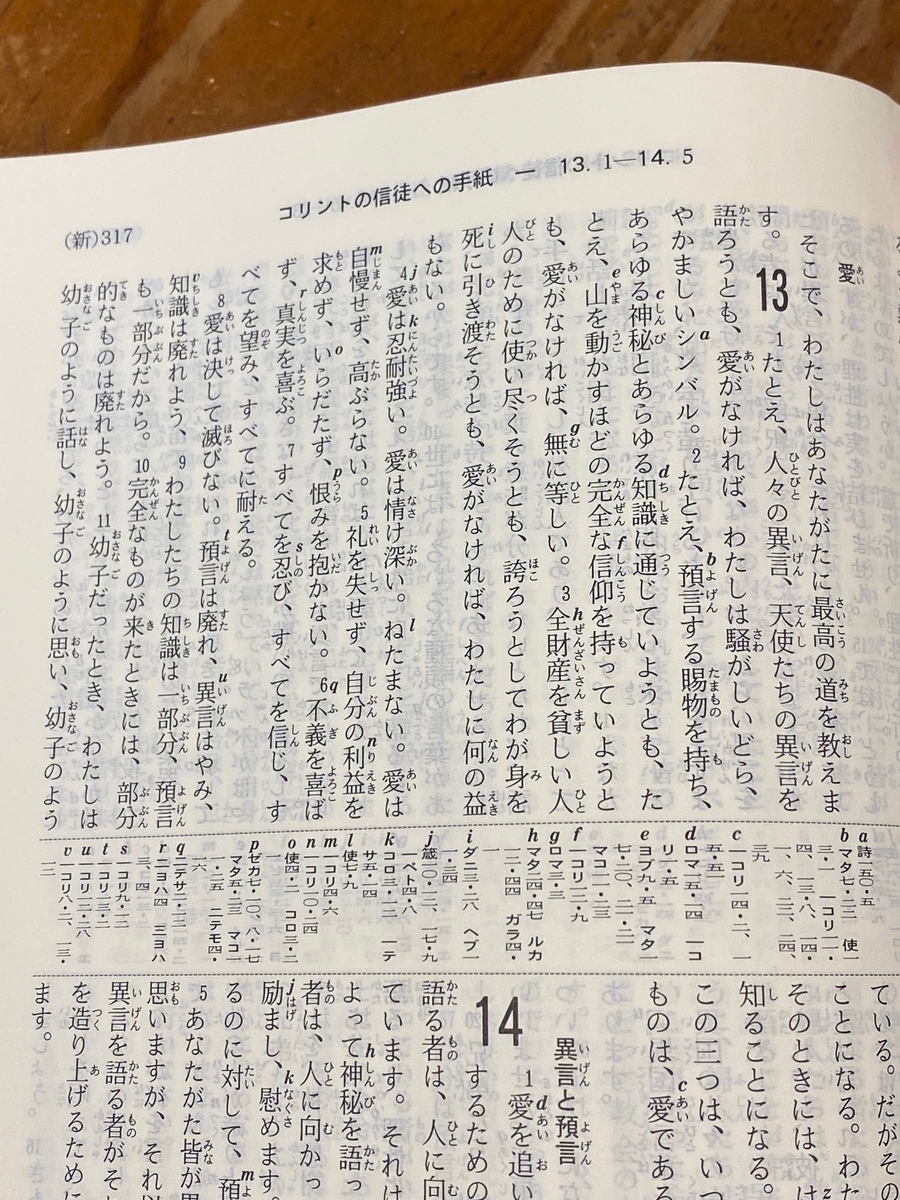 コリントの信徒への手紙 一 13. 1—14. 5
(新)317
愛
そこで、わたしはあなたがたに最高の道を教えま
す。
13 1たとえ、人々の異言、天使たちの異言を
語ろうとも、愛がなければ、わたしは騒がしいどら、
やかましいシンバル。2たとえ、預言する賜物を持ち、
あらゆる神秘とあらゆる知識に通じていようとも、た
とえ、山を動かすほどの完全な信仰を持っていようと
も、愛がなければ、無に等しい。3全財産を貧しい人
人のために使い尽くそうとも、誇ろうとしてわが身を
死に引き渡そうとも、愛がなければ、わたしに何の益
もない。
4愛は忍耐強い。愛は情け深い。ねたまない。愛は
自慢せず、高ぶらない。5礼を失せず、自分の利益を
求めず、いらだたず、恨みを抱かない。6不義を喜ば
ず、真実を喜ぶ。7すべてを忍び、すべてを信じ、す
べてを望み、すべてに耐える。
8愛は決して滅びない。預言は廃れ、異言はやみ、
知識は廃れよう、9わたしたちの知識は一部分、預言
も一部分だから。10完全なものが来たときには、部分
的なものは廃れよう。11幼子だったとき、わたしは
幼子のように話し、幼子のように思い、幼子のよう
a詩一五〇・五
bマタ七・二二 使一
三・一 一コリ一一・
cーコリ一四・二、一
五・五一
dロマ一五・一四 一コ
リ一・五
eヨブ九・五 マタ一
七・二〇、二一・二一
マコ一一・二三
fーコリ一二・九
gロマ三・三
hマタ二四・四七 ルカ
iダニ三・二八 ヘブ一
一・三四
j箴一〇・一二、一七・九
一ペト四・八
kコロ三・一二 一テ
サ五・一四
l使七・九
mーコリ四・六
nーコリ一〇・二四
o使四・二 コロ三・二
pゼカ七・一〇、八・一七
マタ五・二三 マコ一
一・二五 二テモ四・
一六
q二テサ二・一二
r二ヨハ四 三ヨハ
三、四
sーコリ九・一二
tーコリ一三・二
uーコリ一二・二八
vーコリ八・二、一三・
一二
ている。だがその
ことになる。わた
そのときには、は
知ることになる。
この三つは、いつ
ものは、愛である
異言と預言
14 1愛を追い
するための
語る者は、人に向
ています。それは
よって神秘を語っ
者は、人に向かっ
励まし、慰めます。
るのに対して、預
5あなたがた皆が異
思いますが、それ以
異言を語る者がそ
を造り上げるために
ます。